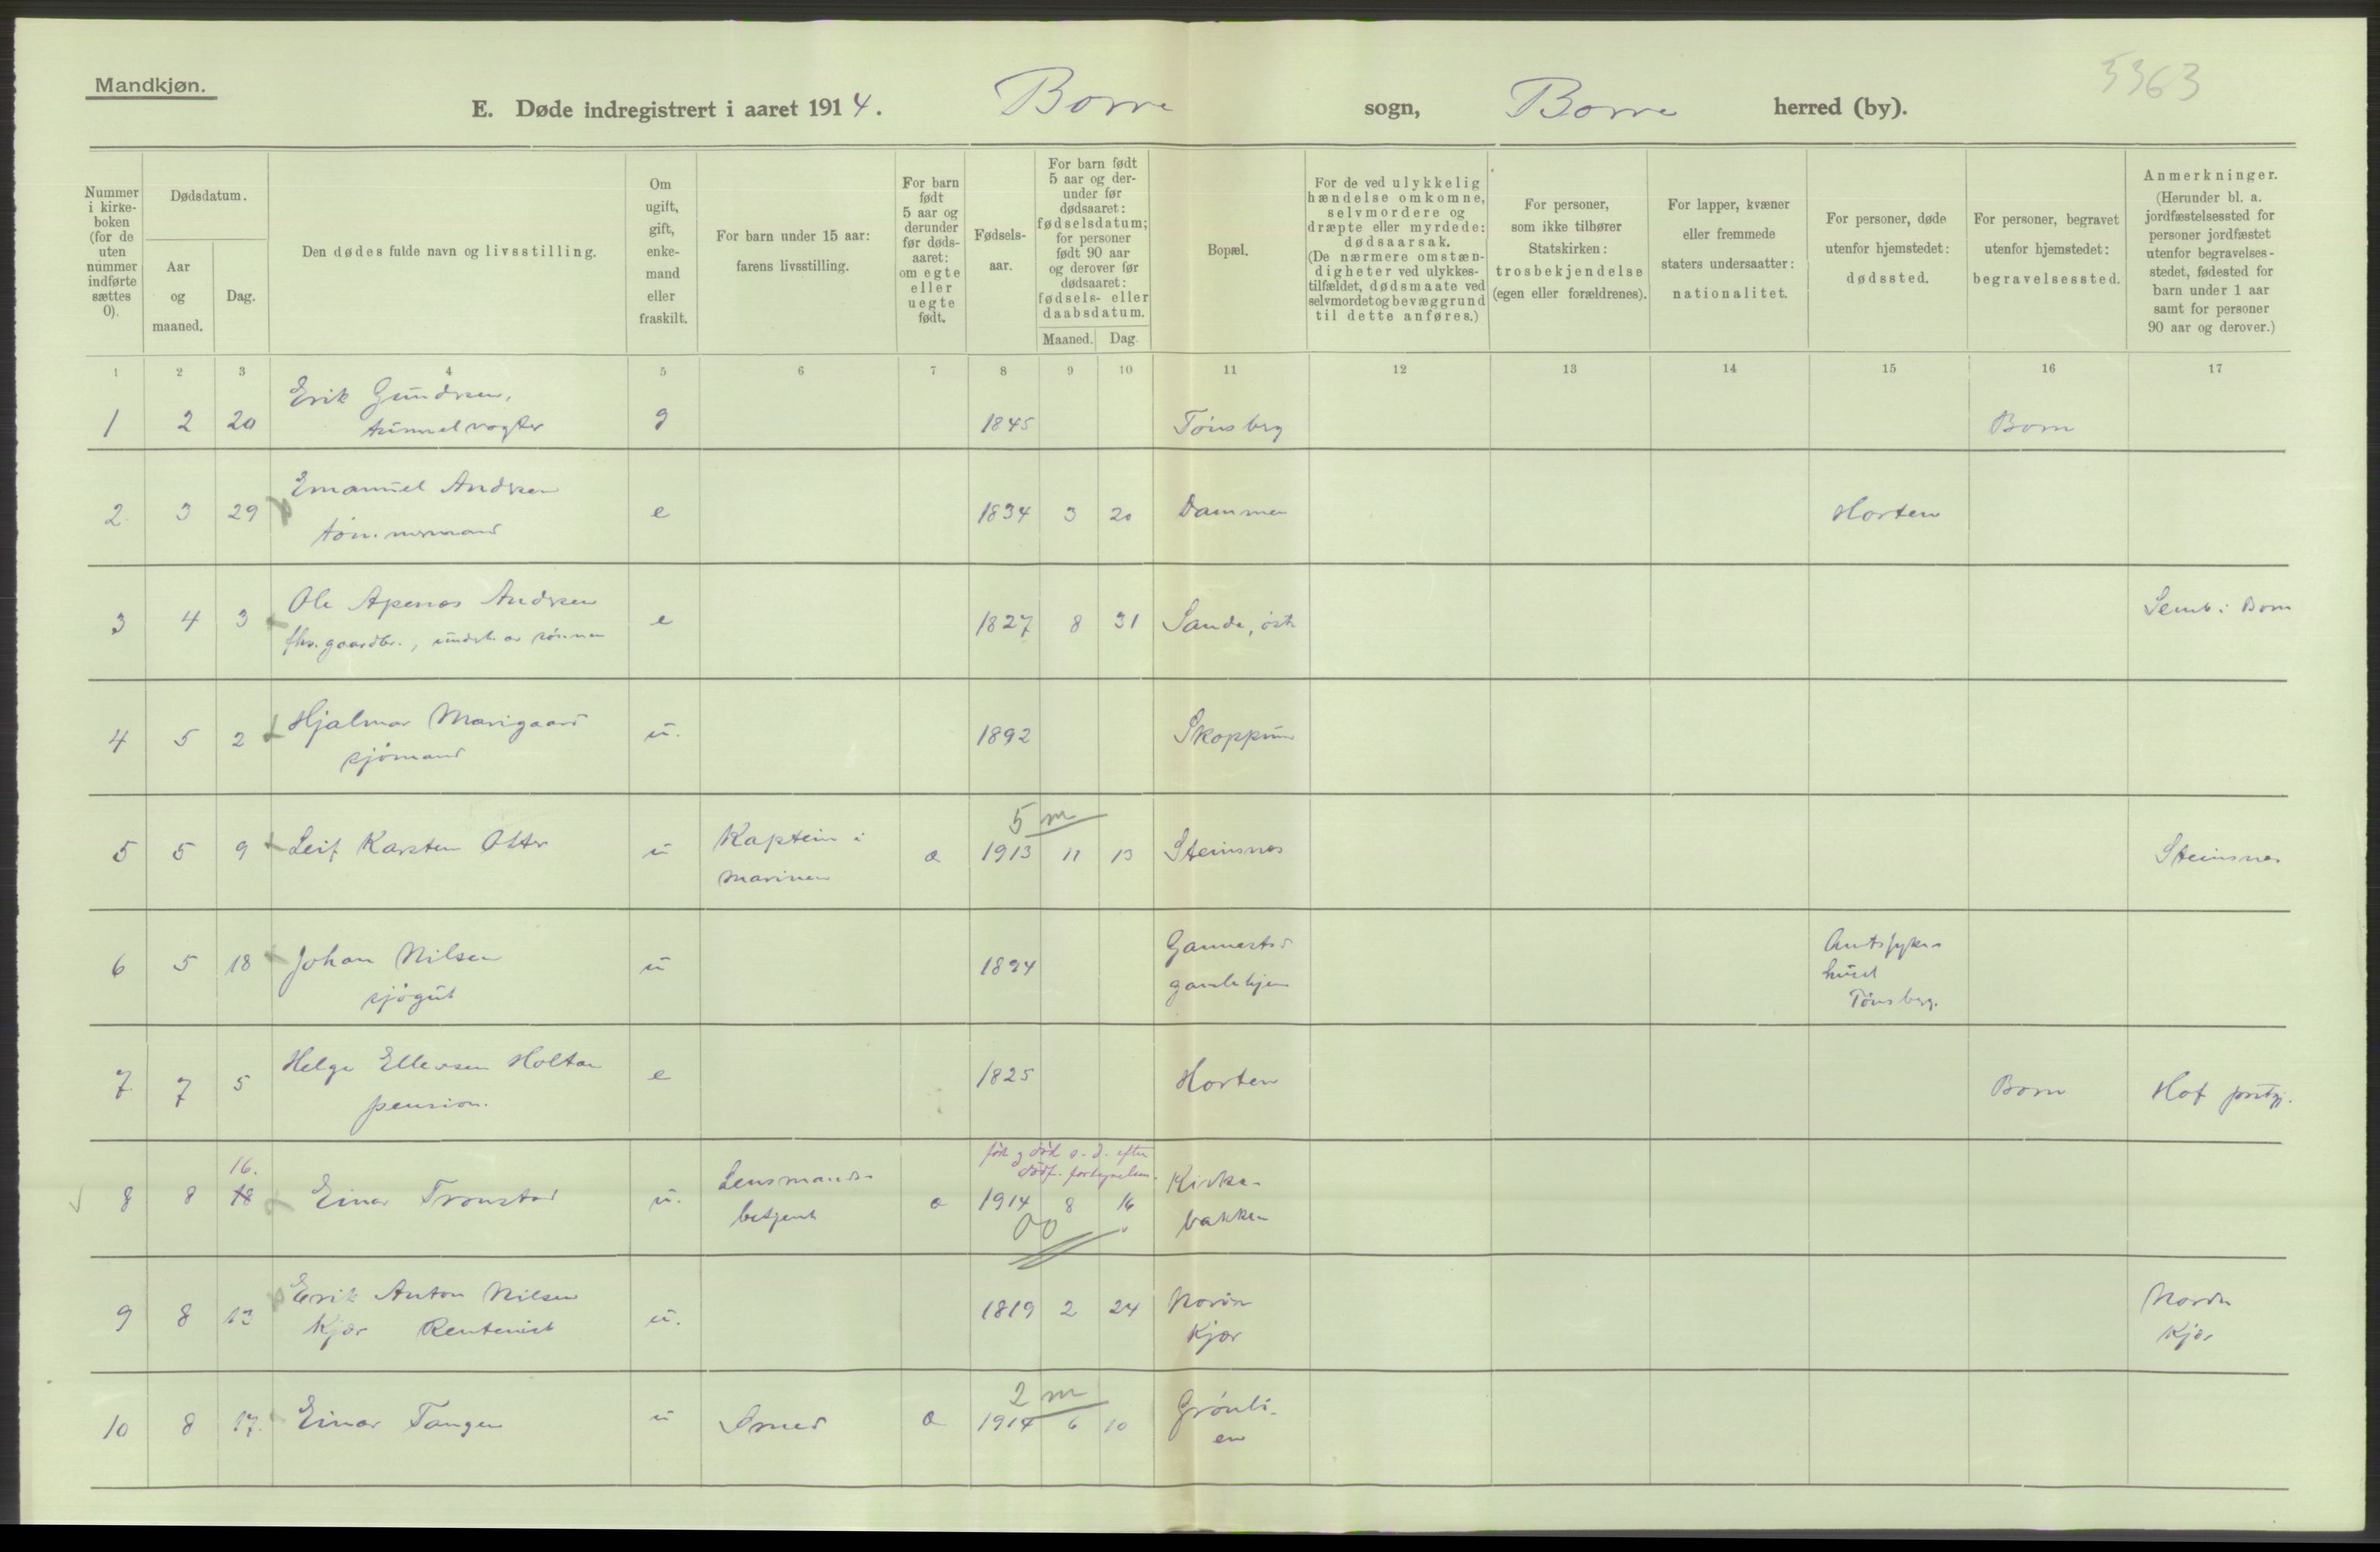 Mandkjøn.
5363
E. Døde indregistrert i aaret 1914. Borre sogn, Borre herred (by).
Nummer i kirke-boken (for de uten nummer indførte sættes 0).
Dødsdatum.
Aar og maaned.
Dag.
Den dødes fulde navn og livsstilling.
Om ugift, gift, enke-mand eller fraskilt.
For barn under 15 aar: farens livsstilling.
For barn født 5 aar og derunder før døds-aaret: om egte eller uegte født.
Fødsels-aar.
For barn født 5 aar og der-under før dødsaaret: fødselsdatum; for personer født 90 aar og derover før dødsaaret: fødsels- eller daabsdatum.
Maaned. Dag.
Bopæl.
For de ved ulykkelig hændelse omkomne, selvmordere og dræpte eller myrdede: dødsaarsak. (De nærmere omstæn-digheter ved ulykkes-tilfældet, dødsmaate ved selvmordet og bevæggrund til dette anføres.)
For personer, som ikke tilhører Statskirken: trosbekjendelse (egen eller forældrenes).
For lapper, kvæner eller fremmede staters undersaatter: nationalitet.
For personer, døde utenfor hjemstedet: dødssted.
For personer, begravet utenfor hjemstedet: begravelsessted.
Anmerkninger. (Herunder bl. a. jordfæstelsessted for personer jordfæstet utenfor begravelses-stedet, fødested for barn under 1 aar samt for personer 90 aar og derover.)
1 2 3 4 5 6 7 8 9 10 11 12 13 14 15 16 17
Erik Gundersen,
1 2 20 tunnelvogter g 1845 Tønsberg Borre
Emanuel Andrsen
2 3 29 tømmermand e 1834 3 20 Dammen Horten
Ole Apenæs Andrsen
3 4 3 fhv. gaardbr., underh. av sønnen e 1827 8 31 Sande, østre Semb i Borre
Hjalmar Marigaard
4 5 2 sjømand u. 1892 Skoppum
5 m
5 5 9 Leif Karsten Otto u Kaptein i marinen æ 1913 11 13 Steinsnes Steinsnes
6 5 18 Johan Nilsen u 1894
sjøgut
Amtssyke-
huset
Tønsberg.
Helge Ellevsen Holtan
7. 7 5 pension. e 1825 Horten Borre Hof prstgj.
født og død s. d. efter
16.
8 8 18 Einar Tronstad u. Lensmands-
betjent æ 1914 8 16 Kirke-
bakken
00
Erik Anton Nilsen
9 8 13 Kjær Rentenist u. 1819 2 24 Nordre
Kjær
Nordre
Kjær
2 m
10 8 17. Einar Tangen u Smed æ 1914 6 10 Grønli-
en